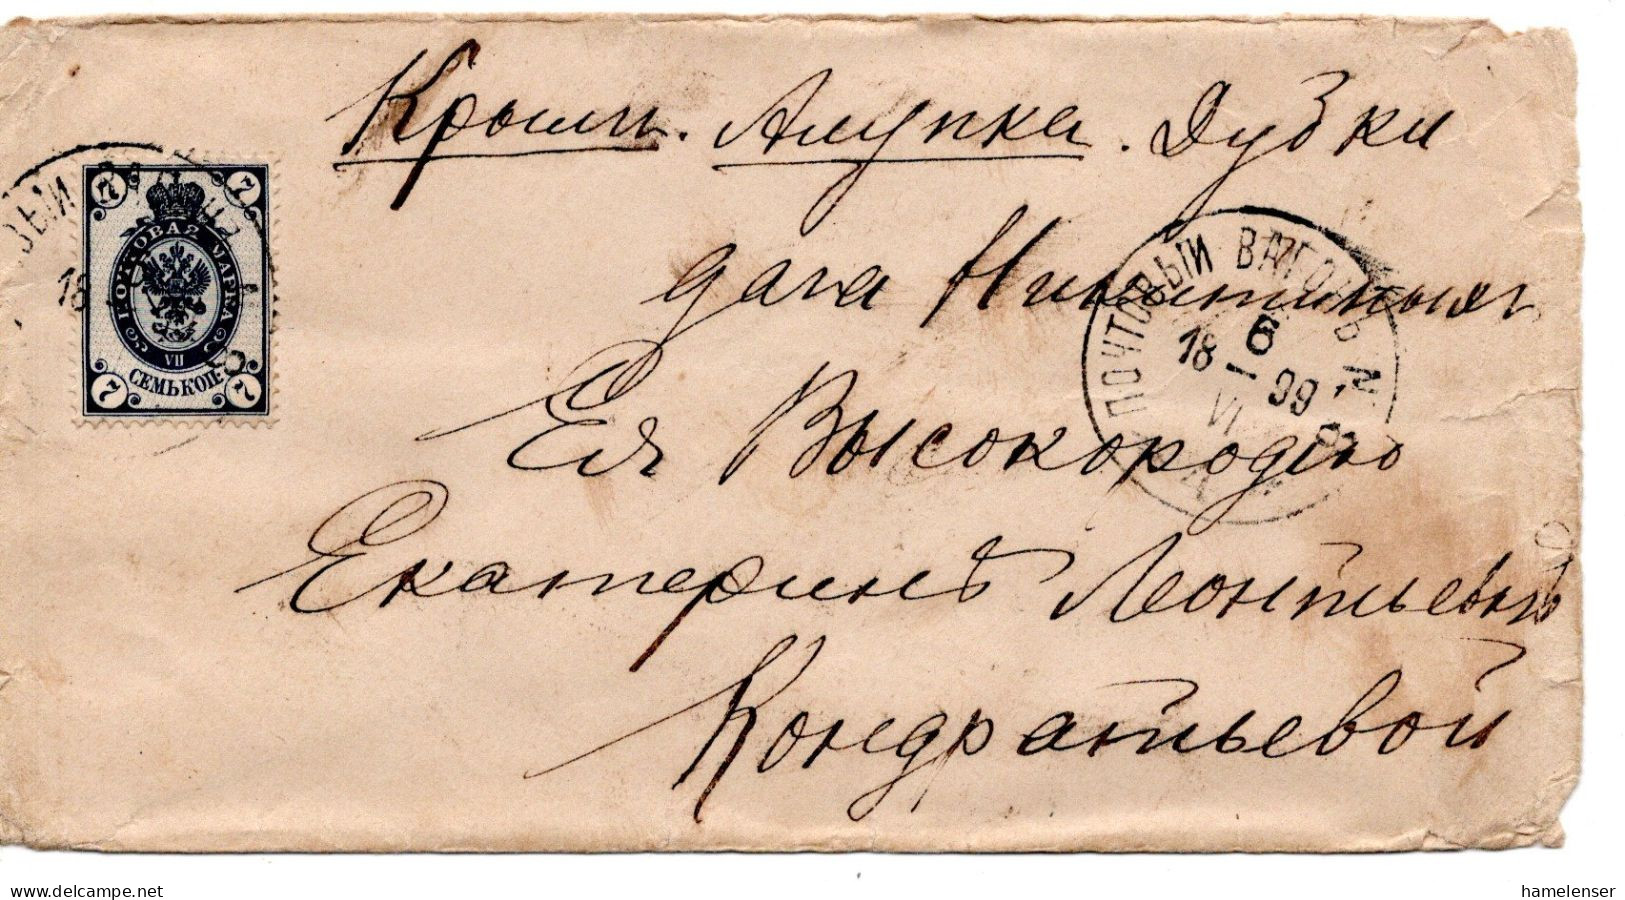 Крымъ. Алупка. Дубки
дача Никитиныхъ
Ея Высокородію
Екатеринѣ Леонтьевнѣ
Кондратьевой
ПОЧТОВЫЙ ВАГОНЪ №
6
18 99
VI
ВЫЙ
18
7 7
ПОЧТОВАЯ МАРКА
VII
СЕМЬ КОП.
7 7
www.delcampe.net
hamelenser